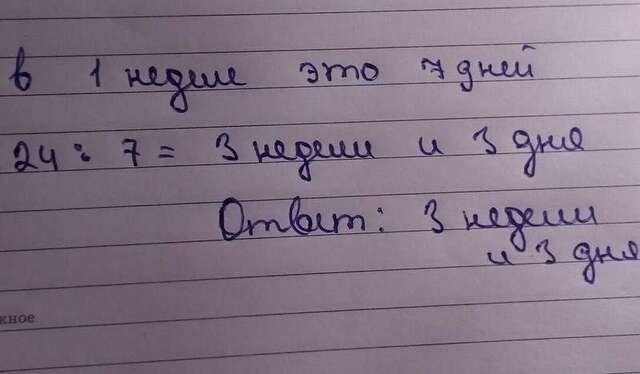 в 1 неделе это 7 дней
24 : 7 = 3 недели и 3 дня
Ответ: 3 недели
и 3 дня
жное